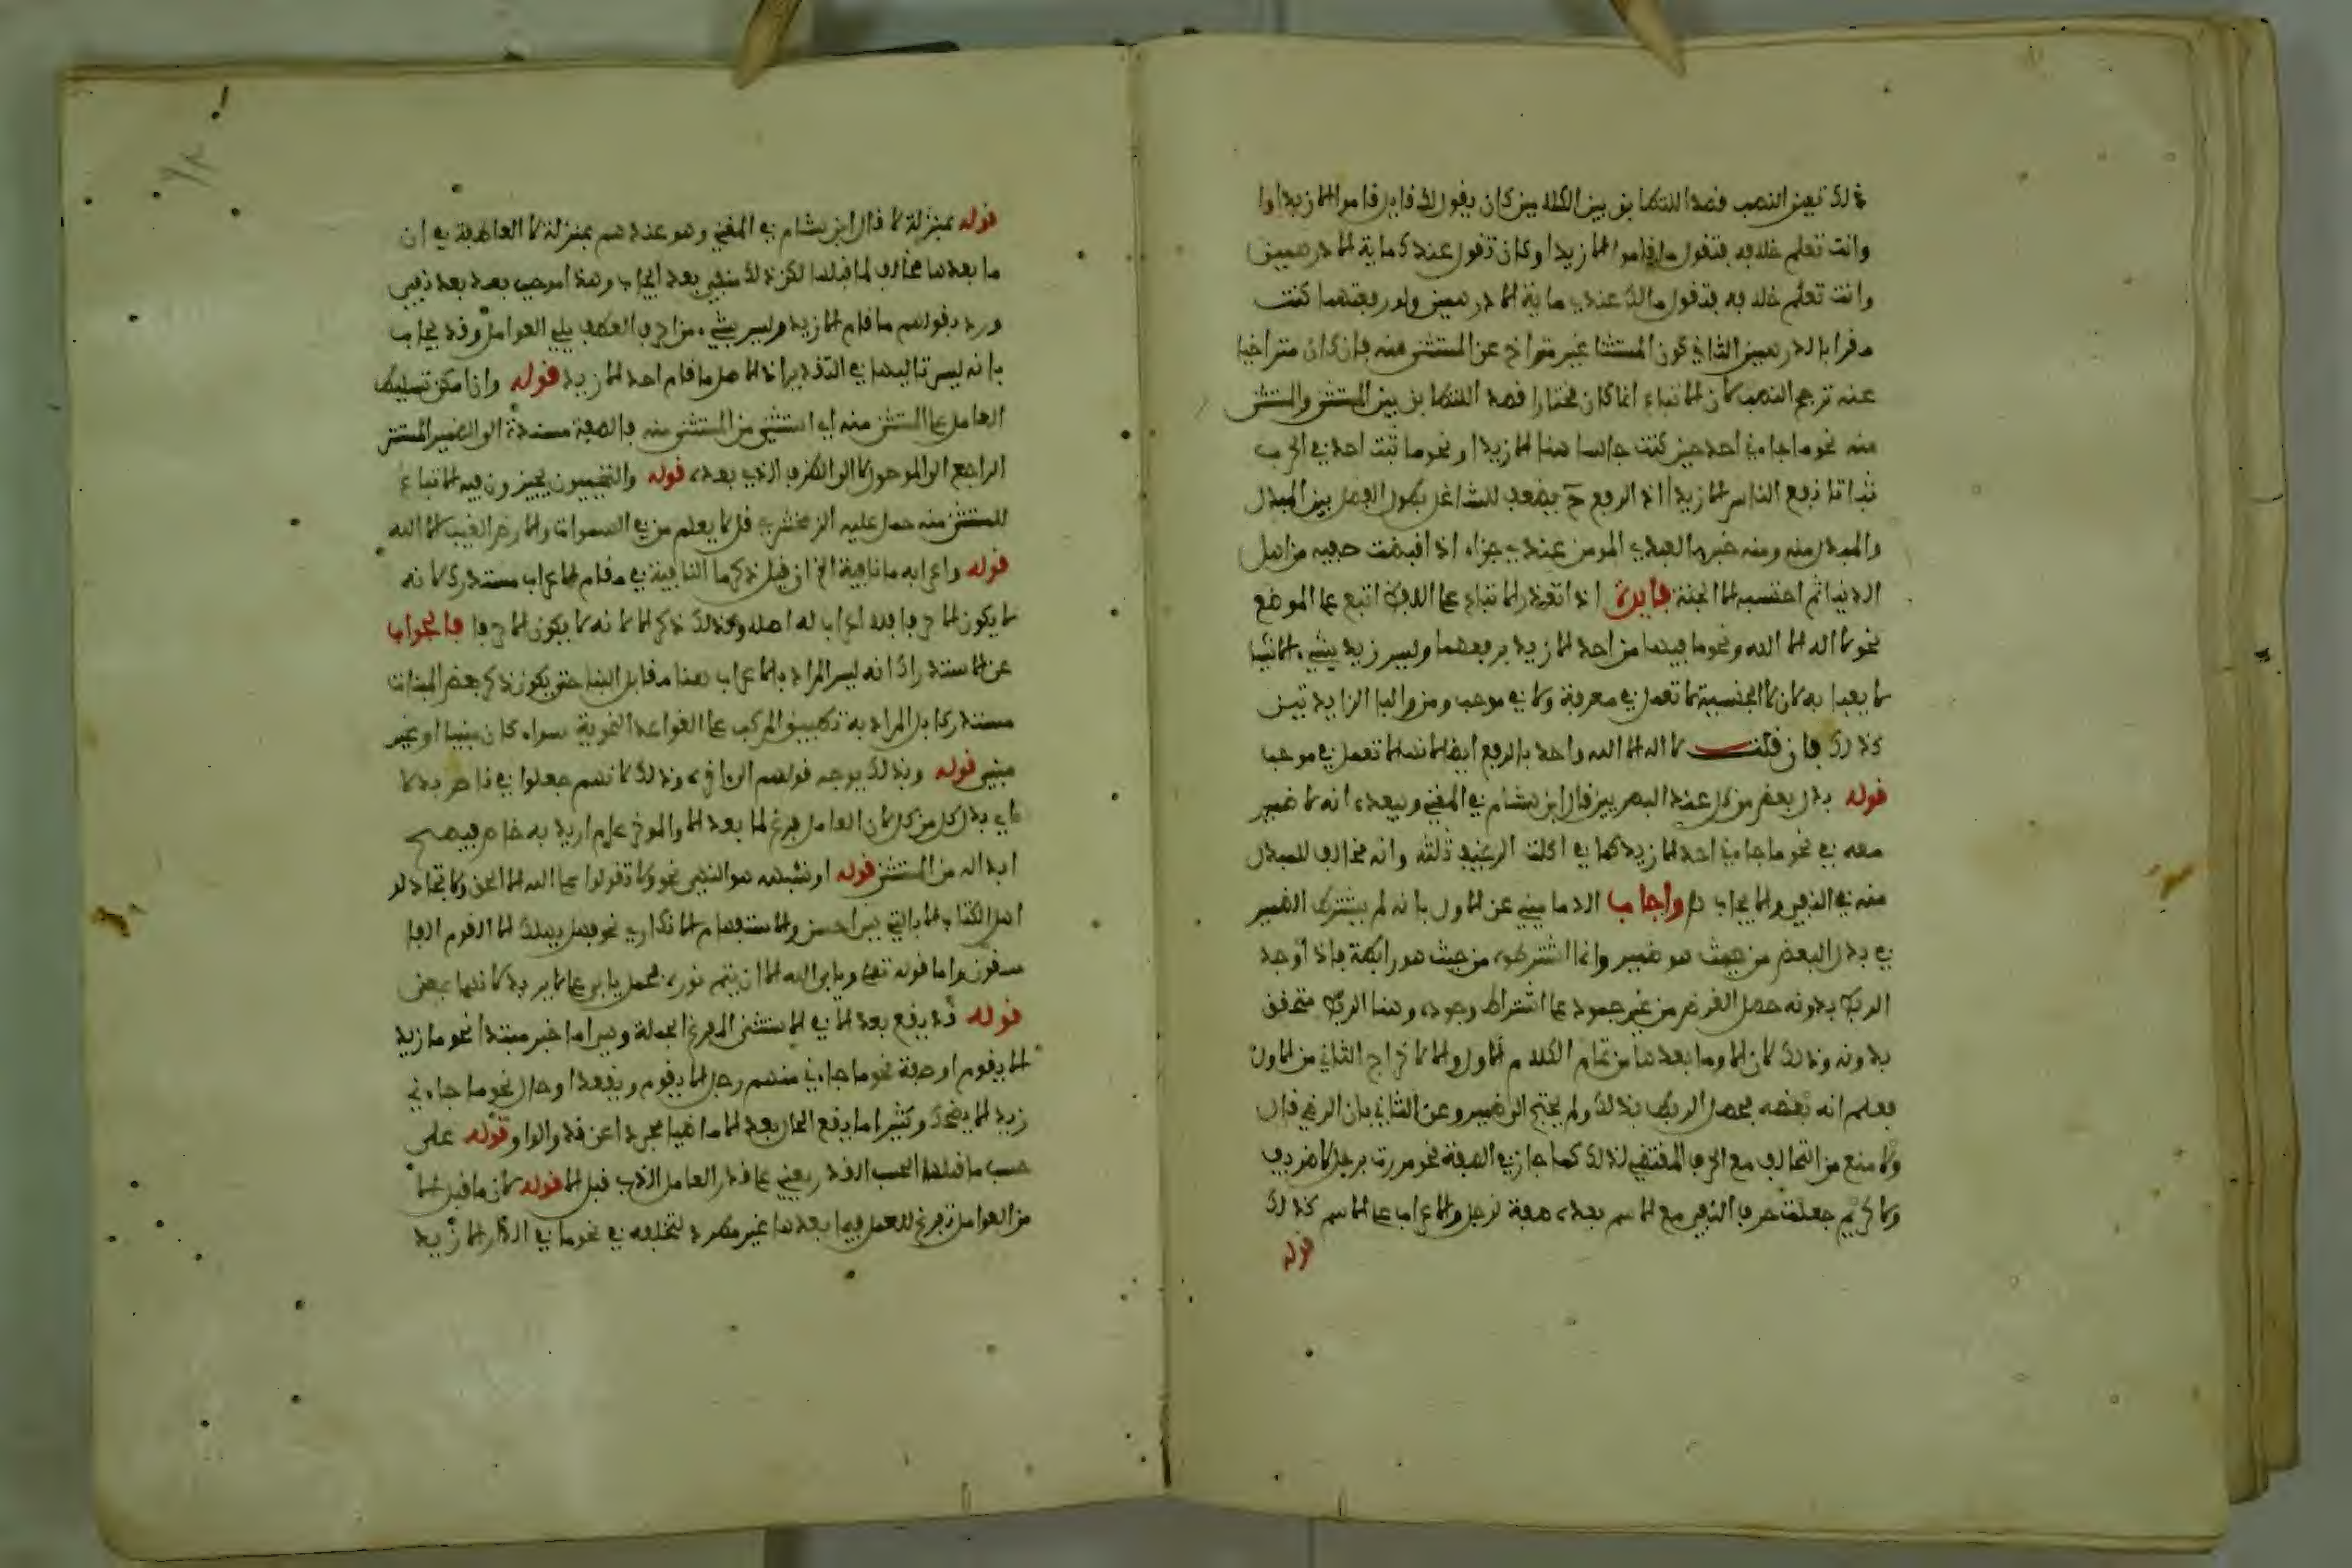 ذلك تعين النصب قصدا للتطابق بين الكلامين كان يقول لك قايل قاموا إلا زيدا وا
وانت تعلم خلافه فتقول ما قاموا إلا زيدا وكان تقول عندك ماية إلا درهمين
وانت تعلم خلافه فتقول مالك عندي ماية إلا درهمين ولو رفعتهما كنت
مقرا بالدرهمين الثاني كون المستثنا غير متراخ عن المستثنى منه فإن كان متراخيا
عنه ترجح النصب لأن الإتباع انما كان مختارا قصد التطابق بين المستثنى والمستثنى
منه نحو ما جاءني احد حين كنت جالسا هنا إلا زيدا ونحو ما ثبت احد في الحرب
ثباتا نفع الناس إلا زيدا اذ الرفع ح يضعف للتشاغل بطول الفصل بين المبدل
والمبدل منه ومنه خبر ما لعبدي المومن عندي جزاء اذا قبضت صفيه من اهل
الدنيا ثم احتسبه إلا الجنة فايدة اذا تعذر الإتباع على اللفظ اتبع على الموضع
نحو لا اله إلا الله ونحو ما فيها من احد إلا زيد برفعهما وليس زيد بشيء إلا شيا
لا يعبا به لأن لا الجنسية لا تعمل في معرفة ولا في موجب ومن والبا الزايدتين
كذلك فإن قلت لا اله إلا الله واحد بالرفع ايضا لأنها لا تعمل في موجب
قوله بدل بعض من كل عند البصريين قال ابن هشام في المغني ويبعده انه لا ضمير
معه في نحو ما جاءني احد إلا زيد كما في اكلت الرغيف ثلثه وانه مخالف للمبدل
منه في النفي والإيجاب واجاب الدماميني عن الاول بانه لم يشترط الضمير
في بدل البعض من حيث هو ضمير وانما اشترطوه من حيث هو رابط فإذا وجد
الربط بدونه حصل الغرض من غير جمود على اشتراط وجوده وهنا الربط متحقق
بدونه وذلك لأن إلا وما بعدها من تمام الكلام الاول وإلا لإخراج الثاني من الاول
فعلم انه بعضه فحصل الربط بذلك ولم يحتج الى ضمير وعن الثاني بان الرضي قال
ولا منع من التخالف مع الحرف المقتضي لذلك كما جاز في الصفة نحو مررت برجل لا ظريف
ولا كريم جعلت حرف النفي مع الاسم بعده صفة لرجل والإعراب على الاسم كذلك
قوله
قوله بمنزلة لا قال ابن هشام في المغني وهو عندهم بمنزلة لا العاطفة في ان
ما بعدها مخالف لما قبلها لكن ذلك منفي بعد ايجاب وهذا موجب بعد نفي
ورد بقولهم ما قام إلا زيد وليس شيء من احرف العطف يلي العوامل وقد يجاب
بانه ليس تاليها في التقدير اذ الاصل ما قام احد إلا زيد قوله وان امكن تسليط
العامل على المستثنى منه اي استثنى من المستثنى منه فالصفة مسندة الى الضمير المستتر
الراجع الى الموصول لا الى الظرف الذي بعده قوله والتميميون يجيزون فيه الإتباع
للمستثنى منه حمل عليه الزمخشري قل لا يعلم من في السموات والارض الغيب إلا الله
قوله واعرابه ما نافية الخ ان قيل ذكر ما النافية في مقام الإعراب مستدرك لأنه
لا يكون إلا حرفا فلا اعراب له اصلا وكذلك ذكر إلا لأنه لا يكون إلا حرفا فالجواب
عن الاستدراك انه ليس المراد بالإعراب هنا مقابل البنا حتى يكون ذكر بعض المبنيات
مستدركا بل المراد به تطبيق المركب على القواعد النحوية سواء كان مبنيا او غير
مبني قوله وبذلك يوجه قولهم الرافع وذلك لأنهم جعلوا في ناصر بدلا
اي بدل كل من كل لأن العامل فرغ لما بعد إلا والموخر عام اريد به خاص فيصح
ابداله من المستثنى قوله او شبهه هو النهي نحو ولا تقولوا على الله إلا الحق ولا تجادلوا
اهل الكتاب إلا بالتي هي احسن والاستفهام الإنكاري نحو فهل يهلك إلا القوم الفا
سقون واما قوله تعلى ويابى الله إلا ان يتم نوره فحمل يابى على لا يريد لأنهما بمعنى
قوله قد يقع بعد إلا في الاستثنى المفرغ الجملة وهي اما خبر مبتدا نحو ما زيد
إلا يقوم او صفة نحو ما جاءني منهم رجل إلا يقوم ويقعد او حال نحو ما جاءني
زيد إلا يضحك وكثيرا ما يقع الحال بعد إلا ماضيا مجردا عن قد والواو قوله على
حسب ما قبلها الحسب القدر يعني على قدر العامل الذي قبل إلا قوله لأن ما قبل إلا
من العوامل تفرغ للعمل فيما بعدها غير مطرد لتخلفه في نحو ما في الدار إلا زيد